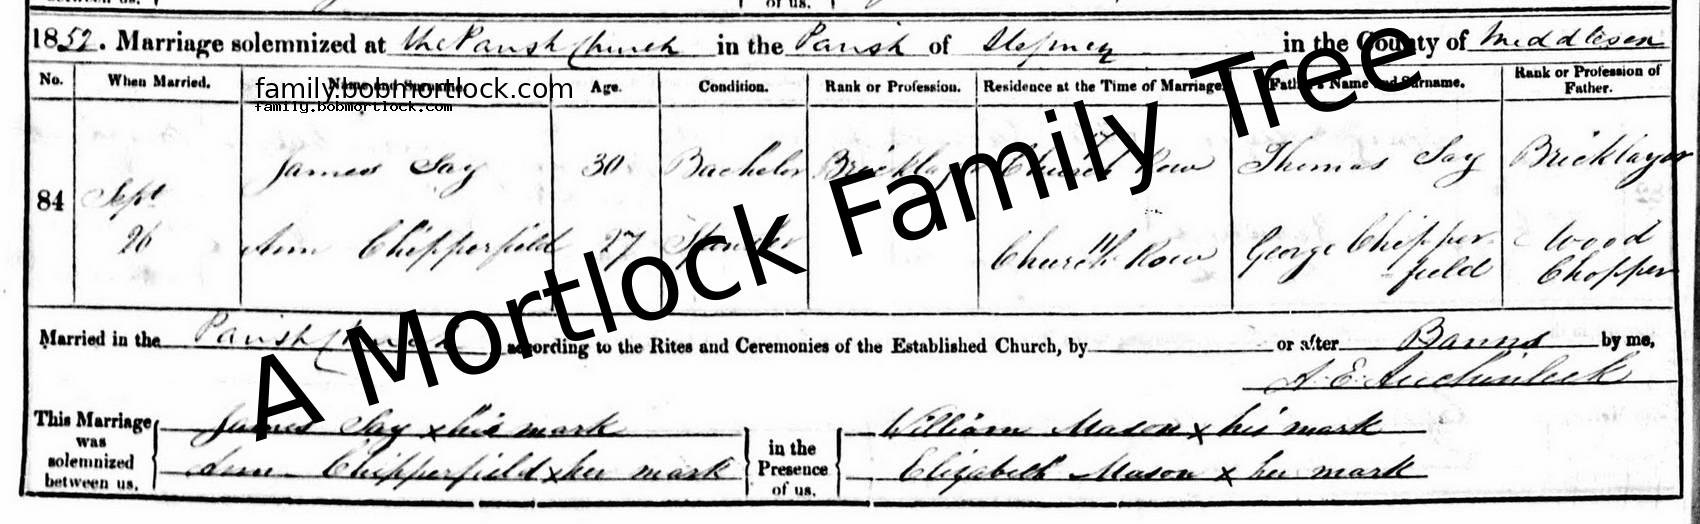 1852. Marriage solemnized at the Parish Church in the Parish of Stepney in the County of Middlesex
No. When Married. Name and Surname. Age. Condition. Rank or Profession. Residence at the Time of Marriage. Father's Name and Surname. Rank or Profession of Father.
family.bobmortlock.com
family.bobmortlock.com
84 Sept 26
James Say 30 Bachelor Bricklayer Church Row Thomas Say Bricklayer
Ann Chipperfield 27 Spinster Church Row George Chipperfield Wood Chopper
A Mortlock Family Tree
Married in the Parish Church according to the Rites and Ceremonies of the Established Church, by or after Banns by me,
A. E. Auchinleck
This Marriage was solemnized between us,
James Say x his mark
Ann Chipperfield x her mark
in the Presence of us,
William Mason x his mark
Elizabeth Mason x her mark